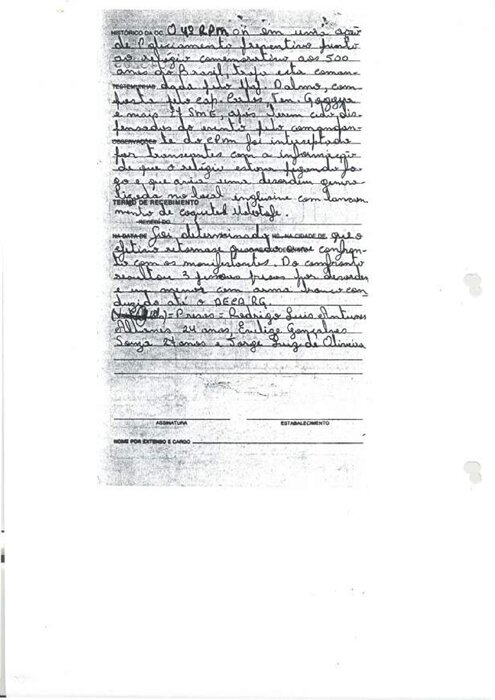 HISTÓRICO DA OC. O 4º RPMon em uma ação
de Policiamento Preventivo junto
ao relógio comemorativo aos 500
anos do Brasil, tropa esta coman-
TESTEMUNHAS dada pelo Maj. Dalmo, com
posta pelo cap. Ten.
e mais 27 SME, após serem
pensados do evento pelo comandan-
OBSERVAÇÃO te do CPM foi interceptada
por transeuntes com a informação
de que o relógio estava pegando fo-
go e que havia uma desordem genera
lizada no local inclusive com lançam
TERMO DE RECEBIMENTO
mento de coquetel Molotofe.
RECEBI DO
NA DATA DE Foi determinado NA CIDADE DE que o
efetivo retornasse quando confron-
to com os manifestantes. Do confronto
resultou 3 pessoas presas por desordem
e um menor com arma branca con
duzido até o DECA RG.
= Presos = Rodrigo Luis Antunes
24 anos, Gonçalves
Souza 21 anos e Jorge Luiz de Oliveira
ASSINATURA ESTABELECIMENTO
NOME POR EXTENSO E CARGO